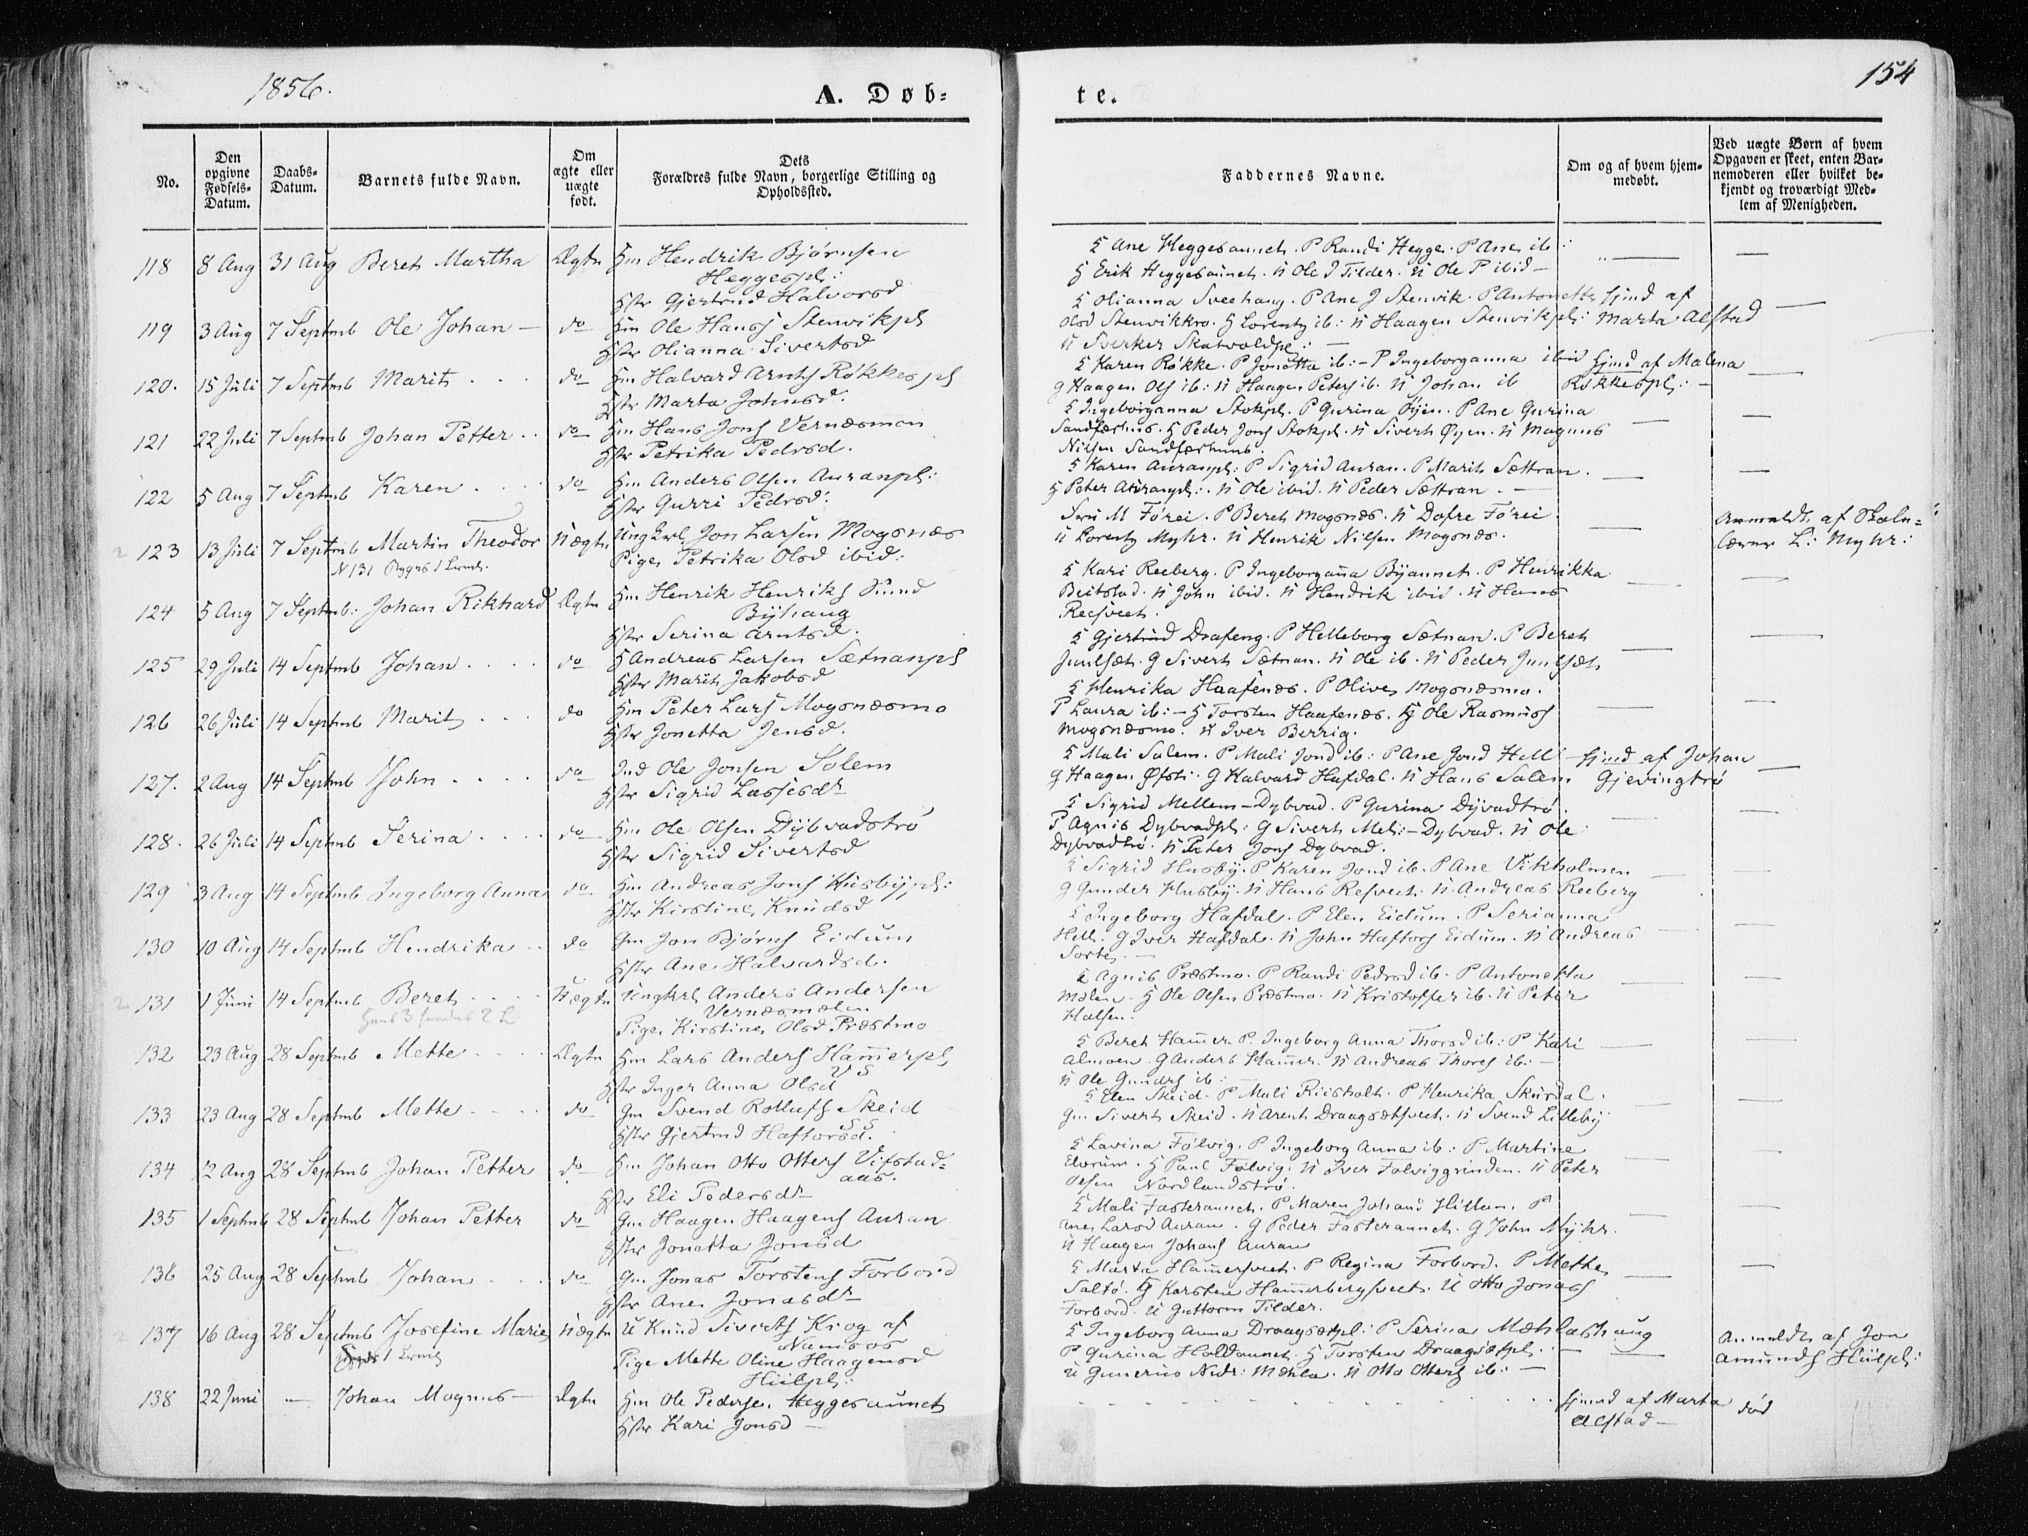 1856.
A. Døb-
te.
154
No.
Den opgivne Fødsels-Datum.
Daabs-Datum.
Barnets fulde Navn.
Om ægte eller uægte født.
Dets Forældres fulde Navn, borgerlige Stilling og Opholdssted.
Faddernes Navne.
Om og af hvem hjemmedøbt.
Ved uægte Børn af hvem Opgaven er skeet, enten Barnemoderen eller hvilket bekjendt og troværdigt Medlem af Menigheden.
118 8 Aug 31 Aug Beret Martha Ægte Hm Hendrik Bjørnsen
Heggespl:
Hstr Gjertrud Halvorsd
K Ane Heggesaunet. P Randi Hegge. P Ane ib:
G Erik Heggesaunet. U Ole J Tilder. U Ole P ibid —
119 3 Aug 7 Septmb Ole Johan — do Hm Ole Hans Stenvikpl
Hstr Olianna Sivertsd
K Olianna Sveehaug. P Ane J Stenvik. P Antonette hjmd af
Olsd Stenvikkro. G Lorentz ib: U Haagen Stenvikpl: Marta Alstad
U Sverker Skatvoldpl: —
120. 15 Juli 7 Septmb Marit . . . do Hm Halvard Arnts Røkkespl
Hstr Marta Johnsd.
K Karen Røkke. P Jonetta ib: — P Ingeborganna ibid hjmd af Malena
G Haagen Ols ib: U Haagen Peters ib. U Johan ib Røkkespl: —
121 22 Juli 7 Septmb Johan Petter . . do Hm Hans Jons Vernæsmon
Hstr Petrika Pedrsd.
K Ingeborganna Stokpl. P Gurina Øyen. P Ane Gurina
Sandfærhus. G Peder Jons Stokpl. U Sivert Øyen. U Magnus
Nilsen Sandfærhus.
122 5 Aug 7 Septmb Karen . . . do Hm Anders Olsen Auranpl:
Hstr Gurri Pedrsd:
K Karen Auranpl: P Sigrid Auran. P Marit Sættran.
G Peter Auranpl: . U Ole ibid. U Peder Sættran. —
123 13 Juli 7 Septmb Martin Theodor Uægte Ungkrl Jon Larsen Mogsnæs
N 131
Pige Petrika Olsd ibid:
M Førei. P Beret Mogsnæs. U Dofre Førei. Anmeldt af Skole-
U Lorentz Myhr. U Henrik Nilsen Mogsnæs. lærer L: Myhr:
124 5 Aug 7 Septmb: Johan Rikhard Ægte Hm Henrik Henriks Sund
Byhaug
Hstr Serina Arntsd.
K Kari Reeberg. P Ingeborganna Byaunet. P Henrikka
Beitstad. U John ibid. U Hendrik ibid. U Hans
Reesveet.
125 29 Juli 14 Septmb Johan . . . . do G Andreas Larsen Sætnanpl
Hstr Marit Jakobsd
K Gjertrud Draseng. P Helleborg Sætnan. P Beret
Juulsæt. G Sivert Sætnan. U Ole ib. U Peder Juulsæt
126 26 Juli 14 Septmb Marit . . . do Hm Peter Lars Mogsnæsmo
Hstr Jonetta Jensd.
K Henrika Haasenæs. P Olive Mogsnæsmo.
P Laura ib: — G Torsten Haasenæs. G Ole Rasmus
Mogsnæsmo. U Iver Berrig.
127. 2 Aug 14 Septmb John . . . . do Ind Ole Jonsen Solem
Hstr Sigrid Lassesdr
K Mali Solem. P Mali Jond ib: P Ane Jond Hell — hjmd af Johan
G Haagen Øfsti. G Halvard Hafdal. U Hans Solem Gjevingtrø
128. 26 Juli 14 Septmb Serina . . . . do Hm Ole Olsen Dybvadstrø
Hstr Sigrid Sivertsd
K Sigrid Mellem-Dybvad. P Gurina Dyvadtrø.
P Agnis Dybvadpl: G Sivert Mel:-Dybvad. U Ole
Dybvadtrø. U Peter Jons Dybvad.
129 3 Aug 14 Septmb Ingeborg Anna do Hm Andreas Jons Husbypl:
Hstr Kirstine Knudsd
K Sigrid Husby. P Karen Jond ib. P Ane Vikholmen
G Gunder Husby. U Hans Resveet. U Andreas Reeberg
130 10 Aug 14 Septmb Hendrika . . do Gm Jon Bjørns Eidum
Hstr Ane Halvardsd.
K Ingeborg Hafdal. P Elen Eidum. P Serianna
Hell. G Iver Hafdal. U John Haftors Eidum. U Andreas
Sorte. —
131 1 Juni 14 Septmb Beret . . . . Uægte Ungkrl Anders Andersen
Vernæsmelen
Pige Kirstine Olsd Præstmo
K Agnis Præstmo. P Randi Pedrsd ib. P Antonetta
Mælen. G Ole Olsen Præstmo. U Kristoffer ib. U Peter
Halsen.
132 23 Aug 28 Septmb Mette . . . . Ægte Hm Lars Anders Hammerpl
VS
Hstr Inger Anna Olsd
K Beret Hammer P. Ingeborg Anna Thorsd ib: P Kari
Almoen. G Anders Hammer. U Andreas Thores ib: —
U Ole Gunders ib:
133 23 Aug 28 Septmb Mette . . . . do Gm Svend Rolluf Skeid
SS
Hstr Gjertrud Haftorsd.
K Elen Skeid. P Mali Riisholt. P Henrika Skurdal.
Gm Sivert Skeid. U Arent Draagsætsveet. U Svend Lilleby
134 12 Aug 28 Septmb Johan Petter do Hm Johan Otto Otters Vifstad-
aas.
Hstr Eli Pedersdr
K Lavina Følvig. P Ingeborg Anna ib: P Martine
Elvrum. G Paul Følvig. U Iver Følviggrinden. U Peter
Olsen Nordlandstrø.
135 1 Septmb 28 Septmb Johan Petter do Gm Haagen Haagens Auran
Hstr Jonetta Jonsd
K Mali Fasteraunet. P Maren Johand Hillan. P
Larsd Auran. G Peder Fasteraunet. G John Myhr.
U Haagen Johans Auran
136 25 Aug 28 Septmb Johan . . . do Gm Jonas Torstens Forbord
Hstr Ane Jonasdr
K Marta Hammersveet. P Regina Forbord. P Mette
Saltø. G Karsten Hammerbergsveet. U Otto Jonas
Forbord. U Guttorm Tilder.
137 16 Aug 28 Septmb Josefine Marie Uægte U Knud Siverts Krog af
Namsos
Pige Mette Oline Haagensd
Hillpl:
K Ingeborg Anna Draagsætpl: P Serina Mæhlashaug Anmeldt af Jon
P Gurina Holdaunet. G Torsten Draagsætpl: Amunds Hillpl:
U Gunerius Nedr: Mæhla. U Otto Otters ib: —
138 22 Juni — Johan Magnus — Ægte Hm Ole Pedersen Heggesaunet
Hstr Kari Jonsd —
hjmd af Marta død
Alstad —